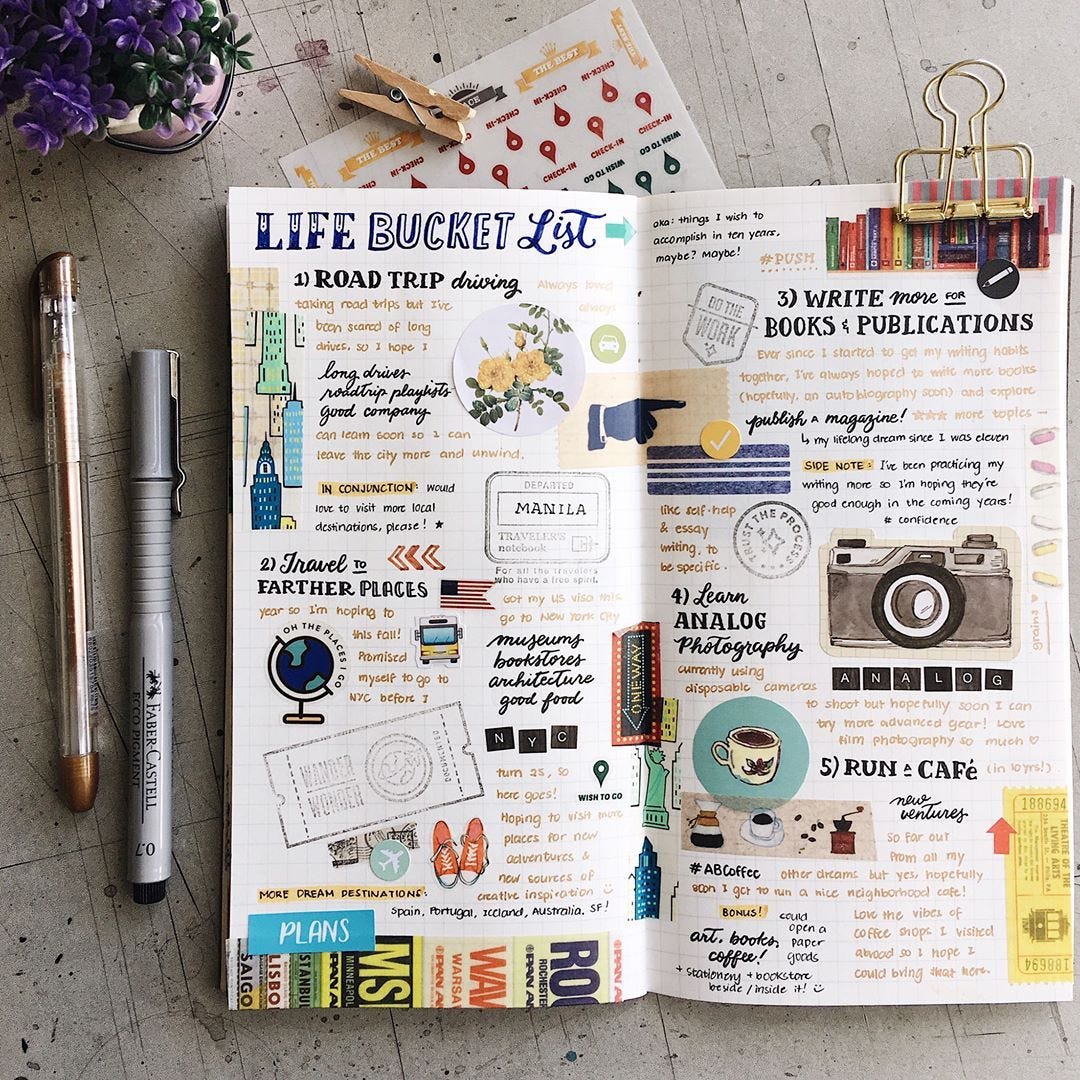 THE BEST
CHECK-IN
CHECK-IN
CHECK-IN
THE BEST
CHECK-IN
CHECK-IN
CHECK-IN
CHECK-IN
CHECK-IN
WISH TO GO
LIFE BUCKET List
1) ROAD TRIP driving Always loved
taking road trips but I've always
been scared of long
drives, so I hope I
long drives
roadtrip playlists
good company
can learn soon so I can
leave the city more and unwind.
IN CONJUNCTION: would
love to visit more local
destinations, please!
DEPARTED
MANILA
TRAVELER'S
notebook
For all the travelers
who have a free spirit.
2) Travel TO
FARTHER PLACES
Got my US visa this
year so I'm hoping to
go to New York City
this fall!
Promised
myself to go to
NYC before I
OH THE PLACES I GO
museums
bookstores
architecture
good food
NYC
turn 25, so
here goes!
WISH TO GO
WANDER
WONDER
DOCUMENTED
Hoping to visit more
places for new
adventures &
new sources of
creative inspiration
MORE DREAM DESTINATIONS:
Spain, Portugal, Iceland, Australia, SF!
PLANS
SAIGO
LISBO
ISTANBU
MINNEAPOL
MS
PAN AM
WARSA
WAW
PAN AM
ROCHESTER
ROC
PAN AM
aka: things I wish to
accomplish in ten years.
maybe? Maybe!
#PUSH
DO THE
WORK
3) WRITE more FOR
BOOKS & PUBLICATIONS
Ever since I started to get my writing habits
together, I've always hoped to write more books
(hopefully, an autobiography soon) and explore
publish a magazine! more topics
my lifelong dream since I was eleven
SIDE NOTE: I've been practicing my
writing more so I'm hoping they're
good enough in the coming years!
# confidence
like self-help
& essay
writing, to
be specific.
TRUST THE PROCESS
4) Learn
ANALOG
Photography
currently using
disposable cameras
ANALOG
to shoot but hopefully soon I can
try more advanced gear! Love
film photography so much
ONE WAY
5) RUN A CAFé (in 10 yrs!)
new
ventures
so far out
from all my
#ABCoffee other dreams but yes, hopefully
soon I get to run a nice neighborhood cafe!
BONUS! could
open a
paper
goods
art, books,
coffee!
+ stationery + bookstore
beside / inside it!
Love the vibes of
coffee shops I visited
abroad so I hope I
could bring that here.
188694
THEATRE OF THE
LIVING ARTS
188694
FABER-CASTELL
ECCO PIGMENT
0.7